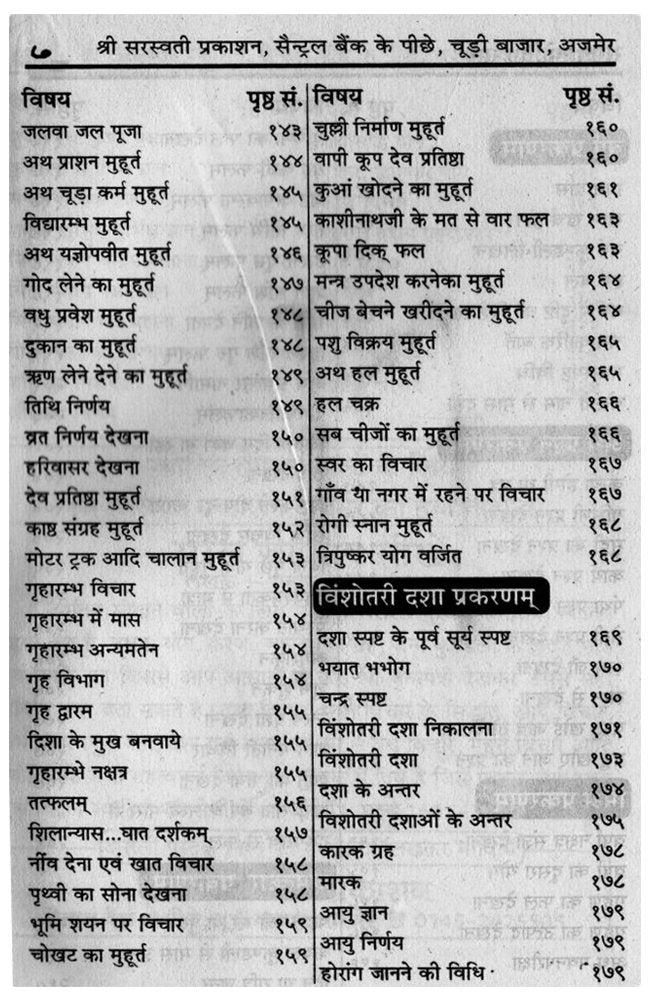 ७ श्री सरस्वती प्रकाशन, सैन्ट्रल बैंक के पीछे, चूड़ी बाजार, अजमेर
विषय पृष्ठ सं.
जलवा जल पूजा १४३
अथ प्राशन मुहूर्त १४४
अथ चूड़ा कर्म मुहूर्त १४५
विद्यारम्भ मुहूर्त १४५
अथ यज्ञोपवीत मुहूर्त १४६
गोद लेने का मुहूर्त १४७
वधु प्रवेश मुहूर्त १४८
दुकान का मुहूर्त १४८
ऋण लेने देने का मुहूर्त १४९
तिथि निर्णय १४९
व्रत निर्णय देखना १५०
हरिवासर देखना १५०
देव प्रतिष्ठा मुहूर्त १५१
काष्ठ संग्रह मुहूर्त १५२
मोटर ट्रक आदि चालान मुहूर्त १५३
गृहारम्भ विचार १५३
गृहारम्भ में मास १५४
गृहारम्भ अन्यमतेन १५४
गृह विभाग १५४
गृह द्वारम १५५
दिशा के मुख बनवाये १५५
गृहारम्भे नक्षत्र १५५
तत्फलम् १५६
शिलान्यास...घात दर्शकम् १५७
नींव देना एवं खात विचार १५८
पृथ्वी का सोना देखना १५८
भूमि शयन पर विचार १५९
चोखट का मुहूर्त १५९
विषय पृष्ठ सं.
चुल्ली निर्माण मुहूर्त १६०
वापी कूप देव प्रतिष्ठा १६०
कुआं खोदने का मुहूर्त १६१
काशीनाथजी के मत से वार फल १६३
कूपा दिक् फल १६३
मन्त्र उपदेश करनेका मुहूर्त १६४
चीज बेचने खरीदने का मुहूर्त १६४
पशु विक्रय मुहूर्त १६५
अथ हल मुहूर्त १६५
हल चक्र १६६
सब चीजों का मुहूर्त १६६
स्वर का विचार १६७
गाँव या नगर में रहने पर विचार १६७
रोगी स्नान मुहूर्त १६८
त्रिपुष्कर योग वर्जित १६८
विंशोतरी दशा प्रकरणम्
दशा स्पष्ट के पूर्व सूर्य स्पष्ट १६९
भयात भभोग १७०
चन्द्र स्पष्ट १७०
विंशोतरी दशा निकालना १७१
विंशोतरी दशा १७३
दशा के अन्तर १७४
विशोतरी दशाओं के अन्तर १७५
कारक ग्रह १७८
मारक १७८
आयु ज्ञान १७९
आयु निर्णय १७९
होरांग जानने की विधि १७९